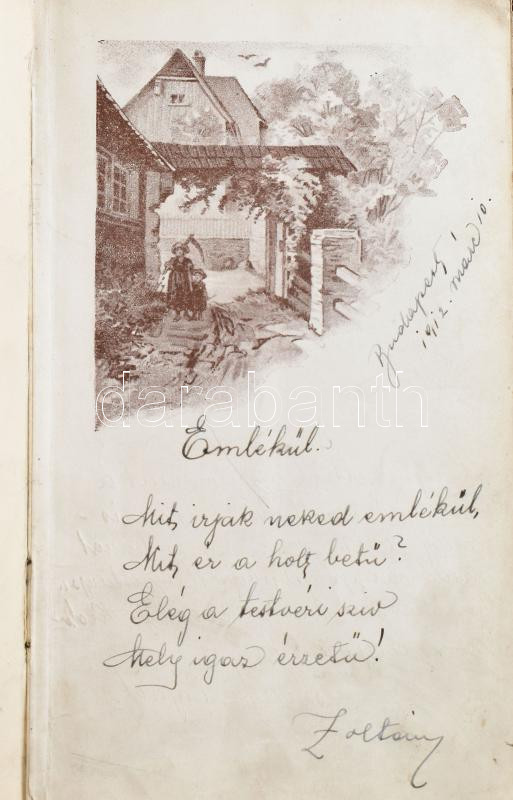 Budapest,
1912. márc 10.
darabanth
Emlékül.
Mit irjak neked emlékül,
Mit er a holt betü?
Elég a testvéri sziv
Mely igaz érzetü!
Zoltán